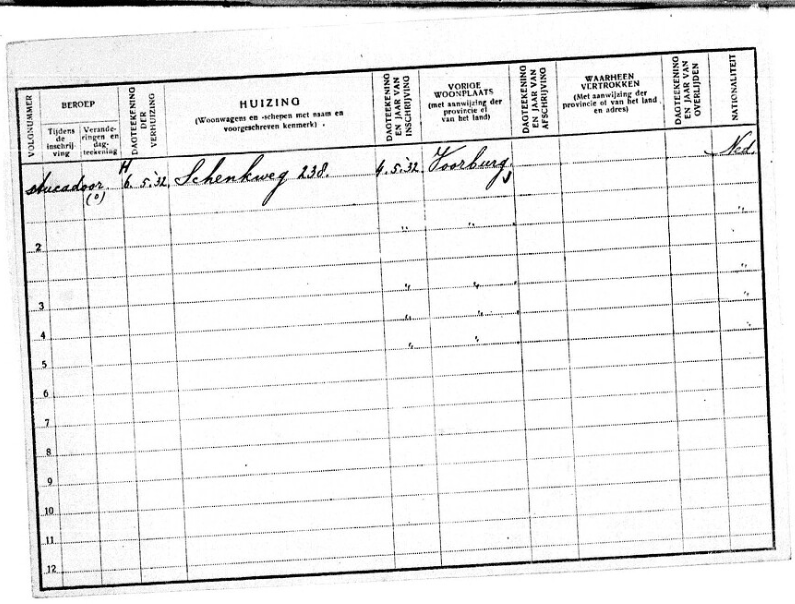 VOLGNUMMER
BEROEP
Tijdens
de
inschrij-
ving
Verande-
ringen en
dag-
teekening
DAGTEEKENING
DER
VERHUIZING
HUIZING
(Woonwagens en -schepen met naam en
voorgeschreven kenmerk)
DAGTEEKENING
EN JAAR VAN
INSCHRIJVING
VORIGE
WOONPLAATS
(met aanwijzing der
provincie of
van het land)
DAGTEEKENING
EN JAAR VAN
AFSCHRIJVING
WAARHEEN
VERTROKKEN
(Met aanwijzing der
provincie of van het land
en adres)
DAGTEEKENING
EN JAAR VAN
OVERLIJDEN
NATIONALITEIT
stucadoor H 6.5.'32 Schenkweg 238. 4.5.'32 Voorburg. Ned.
(o)
2 " " "
3 " " "
4 " " "
5 " " "
6
7
8
9
10
11
12